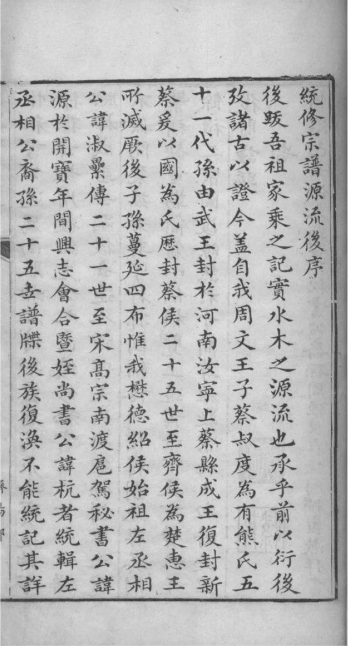 統修宗譜源流後序
後跋吾祖家乘之記實水木之源流也承乎前以衍後
攷諸古以證今盖自我周文王子蔡叔度為有熊氏五
十一代孫由武王封於河南汝寧上蔡縣成王復封新
蔡爰以國為氏厯封蔡侯二十五世至齊侯為楚惠王
所滅厥後子孫蔓延四布惟我懋德紹侯始祖左丞相
公諱淑㬪傳二十一世至宋高宗南渡扈駕秘書公諱
源於開寶年間興志會合暨姪尚書公諱杭者統輯左
丞相公裔孫二十五世譜牒後族復渙不能統記其詳